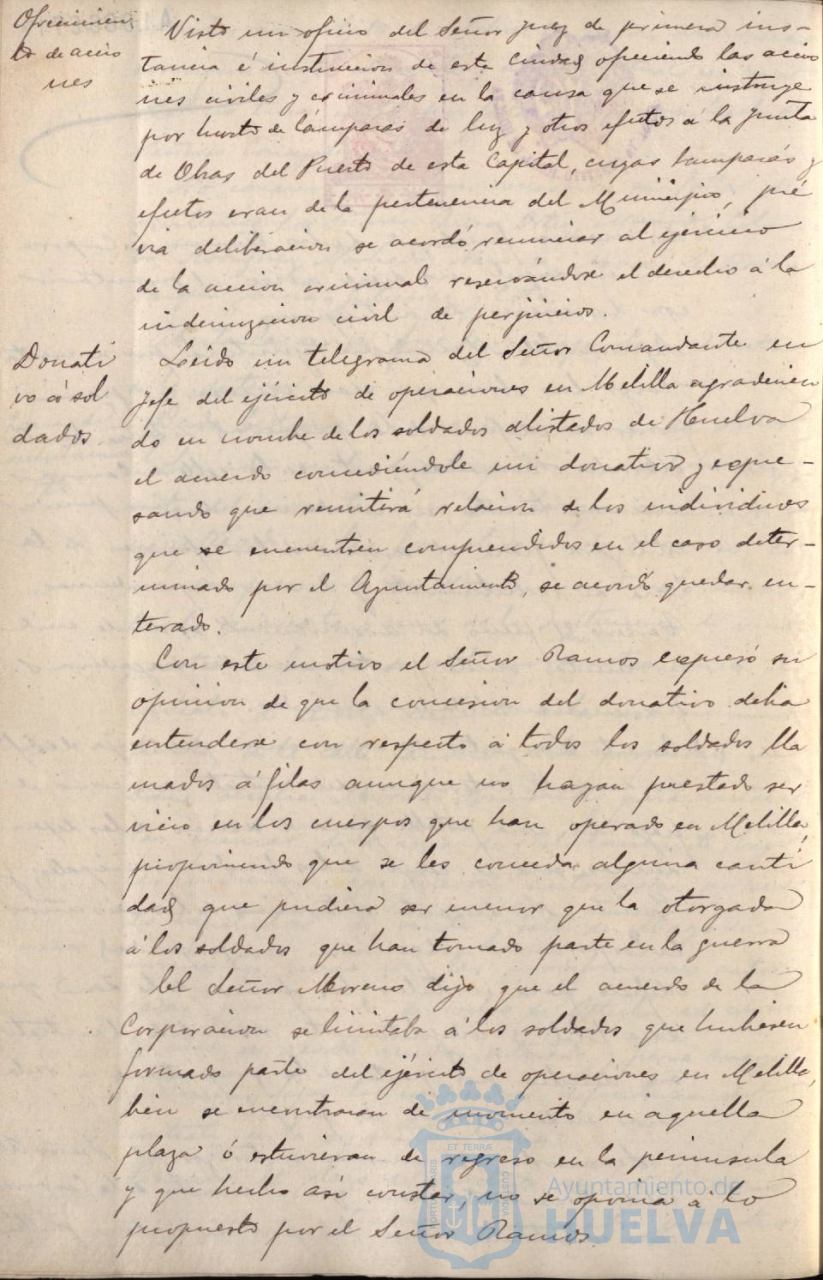 Ofrecimien
to de accio
nes
Visto un oficio del Señor Juez de primera ins-
tancia é instruccion de esta Ciudad ofreciendo las accio
nes civiles y criminales en la causa que se instruye
por hurto de lámparas de luz y otros efectos á la Junta
de Obras del Puerto de esta Capital, cuyas lamparas y
efectos eran de la pertenencia del Municipio, pré
via deliberacion se acordó renunciar al ejercicio
de la accion criminal reservándose el derecho á la
indemnizacion civil de perjuicios.
Donati
vo á sol
dados.
Leido un telegrama del Señor Comandante en
Jefe del ejército de operaciones en Melilla agradecien
do en nombre de los soldados alistados de Huelva
el acuerdo concediéndole un donativo y expre-
sando que remitirá relacion de los individuos
que se encuentren comprendidos en el caso deter-
minado por el Ayuntamiento, se acordó quedar en-
terado.
Con este motivo el Señor Ramos expresó su
opinion de que la concesion del donativo debia
entenderse con respecto á todos los soldados lla
mados á filas aunque no hayan prestado ser
vicio en los cuerpos que han operado en Melilla,
proponiendo que se les conceda alguna canti
dad que pudiera ser menor que la otorgada
á los soldados que han tomado parte en la guerra
El Señor Moreno dijo que el acuerdo de la
Corporacion se limitaba á los soldados que hubiesen
formado parte del ejército de operaciones en Melilla,
bien se encontraran de momento en aquella
plaza ó estuvieran de regreso en la peninsula
y que hecho así constar, no se oponia á lo
propuesto por el Señor Ramos.
Ayuntamiento de
HUELVA